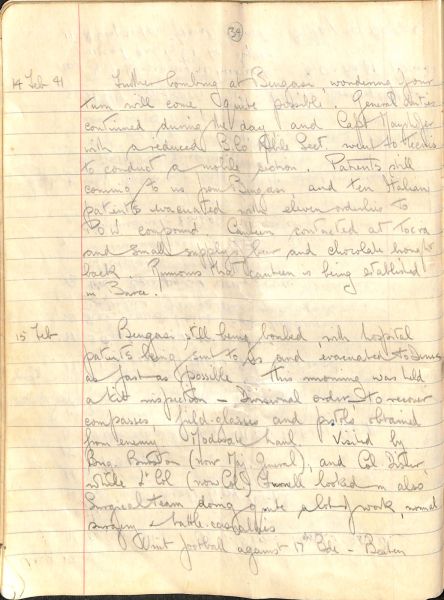 39
14 Feb 41 Further bombing at Bengasi, wondering if our
turn will come quite possible. General duties
continued during the day and Capt
with a reduced Sect. went to Tocra
to conduct a mobile section. Patients still
coming to us from Bengasi and ten Italian
patients evacuated with eleven orderlies to
P.O.W. compound. Canteen contacted at Tocra
and small supply of beer and chocolate brought
back. Rumours that canteen is being established
in Barce.
15 Feb Bengasi still being bombed, with hospital
patients being sent to us and evacuated to
as fast as possible. This morning was held
a kit inspection - Divisional order, to recover
compasses field-glasses and pistols obtained
from enemy haul. Visited by
Brig. Burston (now Maj General), and Col Disher
while Lt Col (now Col) looked in also
Surgical team doing quite a lot of work, normal
surgery & battle-casualties
Unit football against 17th Bde - Beaten